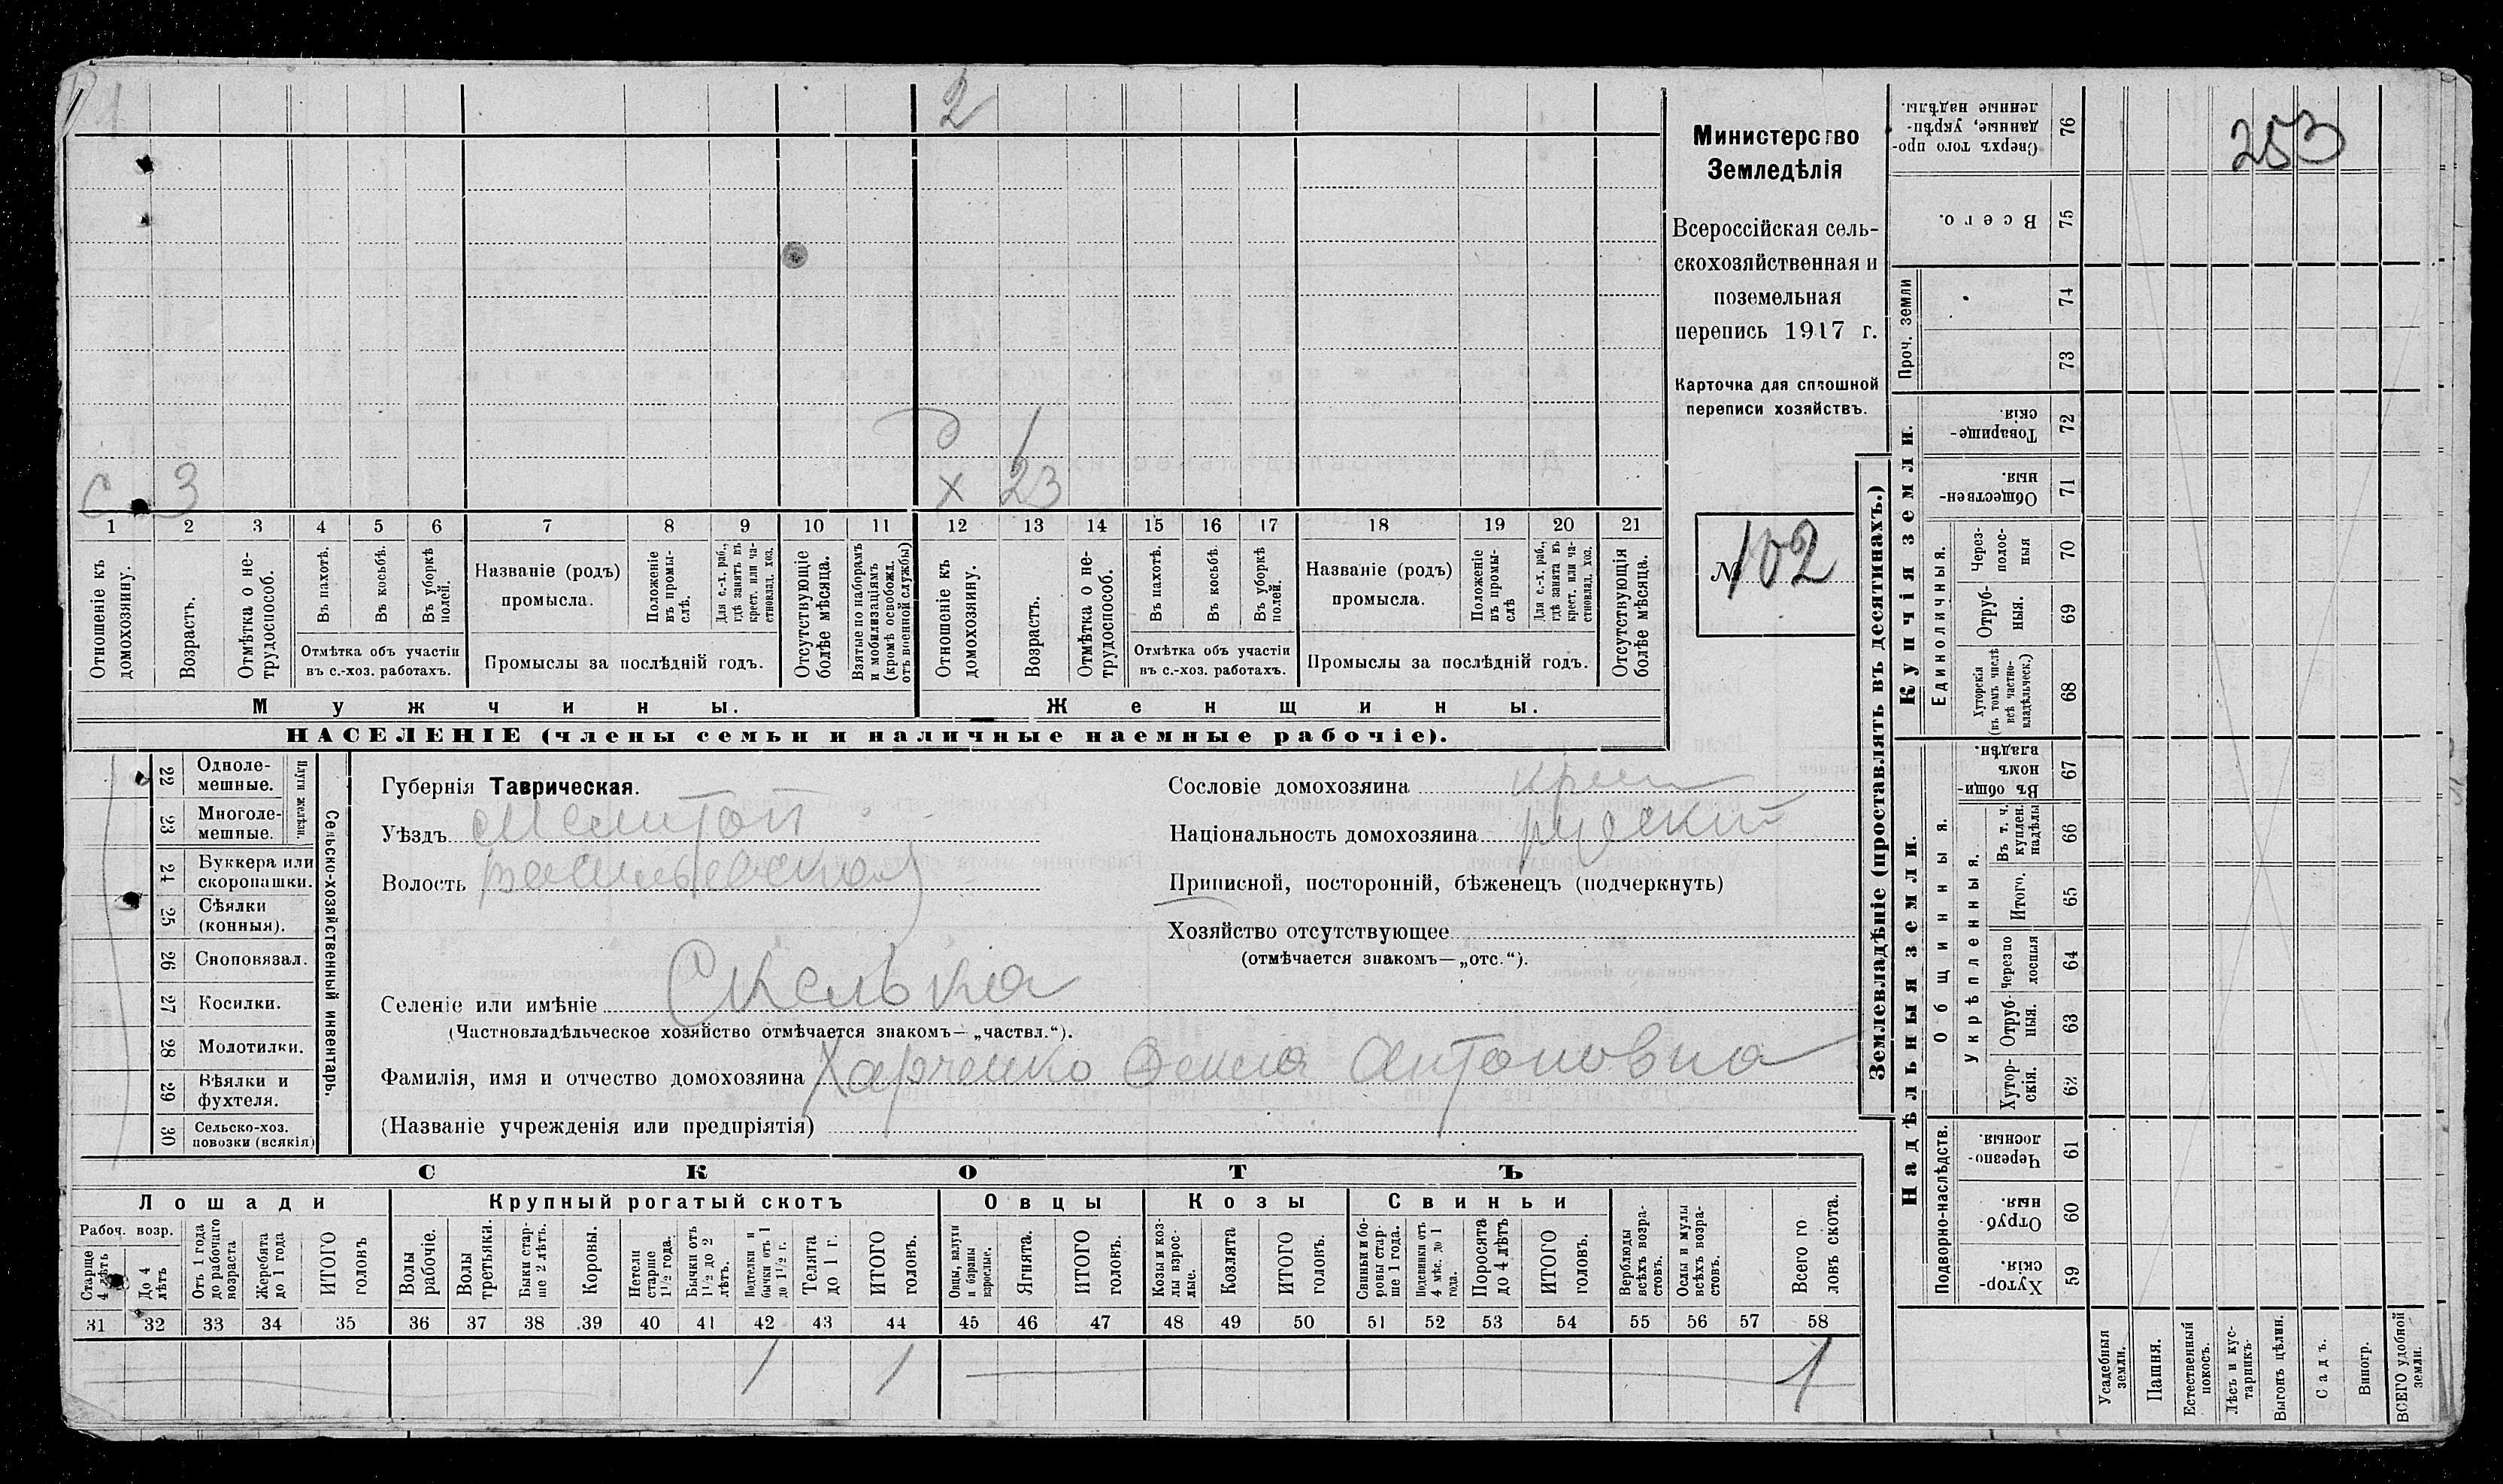 2
253
Министерство
Земледѣлія
Всероссійская сель-
скохозяйственная и
поземельная
перепись 1917 г.
Карточка для сплошной
переписи хозяйствъ.
№ 102
Э 1
С 3 х 23
1 2 3 4 5 6 7 8 9 10 11 12 13 14 15 16 17 18 19 20 21
Отношеніе къ домохозяину.
Возрастъ.
Отмѣтка о не-трудоспособ.
Въ пахотѣ.
Въ косьбѣ.
Въ уборкѣ полей.
Отмѣтка объ участіи
въ с.-хоз. работахъ.
Названіе (родъ)
промысла.
Положеніе въ промы-слѣ.
Для с.-х. раб., гдѣ занятъ въ крест. или ча-стновлад. хоз.
Промыслы за послѣдній годъ.
Отсутствующіе болѣе мѣсяца.
Взятые по наборамъ и мобилизаціямъ (кромѣ освобожд. отъ военной службы)
Отношеніе къ домохозяину.
Возрастъ.
Отмѣтка о не-трудоспособ.
Въ пахотѣ.
Въ косьбѣ.
Въ уборкѣ полей.
Отмѣтка объ участіи
въ с.-хоз. работахъ.
Названіе (родъ)
промысла.
Положеніе въ промы-слѣ
Для с.-х. раб., гдѣ занята въ крест. или ча-стновлад. хоз.
Промыслы за послѣдній годъ.
Отсутствующія болѣе мѣсяца.
Мужчины. Женщины.
НАСЕЛЕНІЕ (члены семьи и наличные наемные рабочіе).
22 Одноле-мешные.
23 Многоле-мешные.
Плуги желѣзн.
24 Буккера или скоропашки.
25 Сѣялки (конныя).
26 Сноповязал.
27 Косилки.
28 Молотилки.
29 Вѣялки и фухтеля.
30 Сельско-хоз. повозки (всякія)
Сельско-хозяйственный инвентарь.
Губернія Таврическая.
Уѣздъ Мелитоп
Волость васильевская
Сословіе домохозяина крест
Національность домохозяина русский
Приписной, посторонній, бѣженецъ (подчеркнуть)
Хозяйство отсутствующее
(отмѣчается знакомъ—„отс.“).
Селеніе или имѣніе Скелька
(Частновладѣльческое хозяйство отмѣчается знакомъ—„частвл.“).
Фамилія, имя и отчество домохозяина Харченко Фекла Антоновна
(Названіе учрежденія или предпріятія)
СКОТЪ
Лошади Крупный рогатый скотъ Овцы Козы Свиньи
Рабоч. возр.
Старше 4 лѣтъ
До 4 лѣтъ
Отъ 1 года до рабочаго возраста
Жеребята до 1 года
ИТОГО головъ
Волы рабочіе.
Волы третьяки.
Быки стар-ше 2 лѣтъ.
Коровы.
Нетели старше 1½ года.
Бычки отъ 1½ до 2 лѣтъ.
Подтелки и бычки отъ 1 до 1½ г.
Телята до 1 г.
ИТОГО головъ.
Овцы, валухи и бараны взрослые.
Ягнята.
ИТОГО головъ.
Козы и коз-лы взрос-лые.
Козлята
ИТОГО головъ.
Свиньи и бо-ровы стар-ше 1 года.
Подсвинки отъ 4 мѣс. до 1 года.
Поросята до 4 лѣтъ
ИТОГО головъ.
Верблюды всѣхъ возра-стовъ.
Ослы и мулы всѣхъ возра-стовъ.
Всего го ловъ скота.
31 32 33 34 35 36 37 38 39 40 41 42 43 44 45 46 47 48 49 50 51 52 53 54 55 56 57 58
1 1 1
Землевладѣніе (проставлять въ десятинахъ.)
Надѣльныя земли.
Купчія земли.
Проч. земли
Подворно-наслѣдств.
Общинныя.
Укрѣпленныя.
Единоличныя.
Сверхъ того про-данные, укрѣп-ленные надѣлы. 76
Всего. 75
74
73
Товарище-скія. 72
Обществен-ныя. 71
Через-полос-ныя 70
Отруб-ныя. 69
Хуторскія (въ томъ числѣ всѣ частно-владѣльческ.) 68
Въ общи-номъ владѣн. 67
Въ т. ч. куплен. надѣлы 66
Итого. 65
черезпо лосныя 64
Отруб-ныя. 63
Хутор-скія. 62
Черезпо-лосныя. 61
Отруб-ныя. 60
Хутор-скія. 59
Усадебныя земли.
Пашня.
Естественный покосъ.
Лѣсъ и кус-тарникъ.
Выгонъ цѣлин.
Садъ.
Виногр.
ВСЕГО удобной земли.